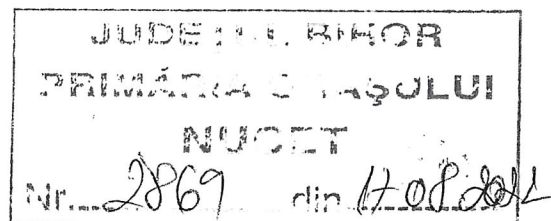 JUDEȚUL BIHOR
PRIMĂRIA ORAȘULUI
NUCET
Nr. 2869 din 17.08